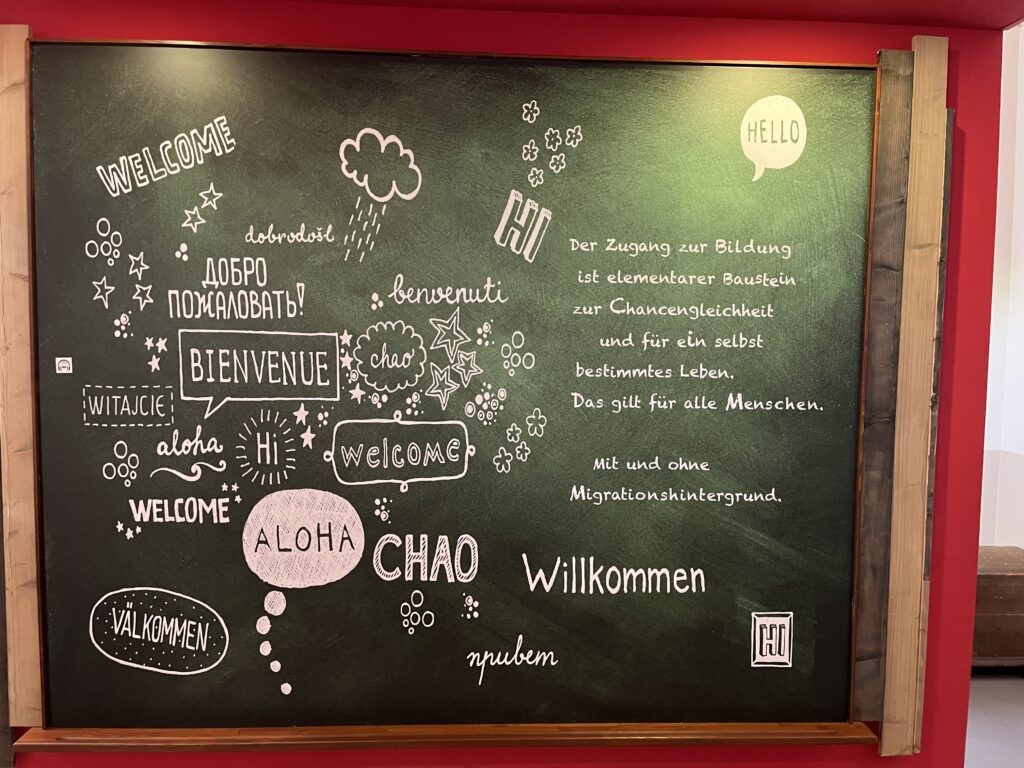 WELCOME
HELLO
HI
dobrodošl
ДОБРО
ПОЖАЛОВАТЬ!
benvenuti
BIENVENUE
chao
WITAJCIE
aloha
Hi
welcome
WELCOME
ALOHA
CHAO
VÄLKOMMEN
привет
Der Zugang zur Bildung
ist elementarer Baustein
zur Chancengleichheit
und für ein selbst
bestimmtes Leben.
Das gilt für alle Menschen.
Mit und ohne
Migrationshintergrund.
Willkommen
HI